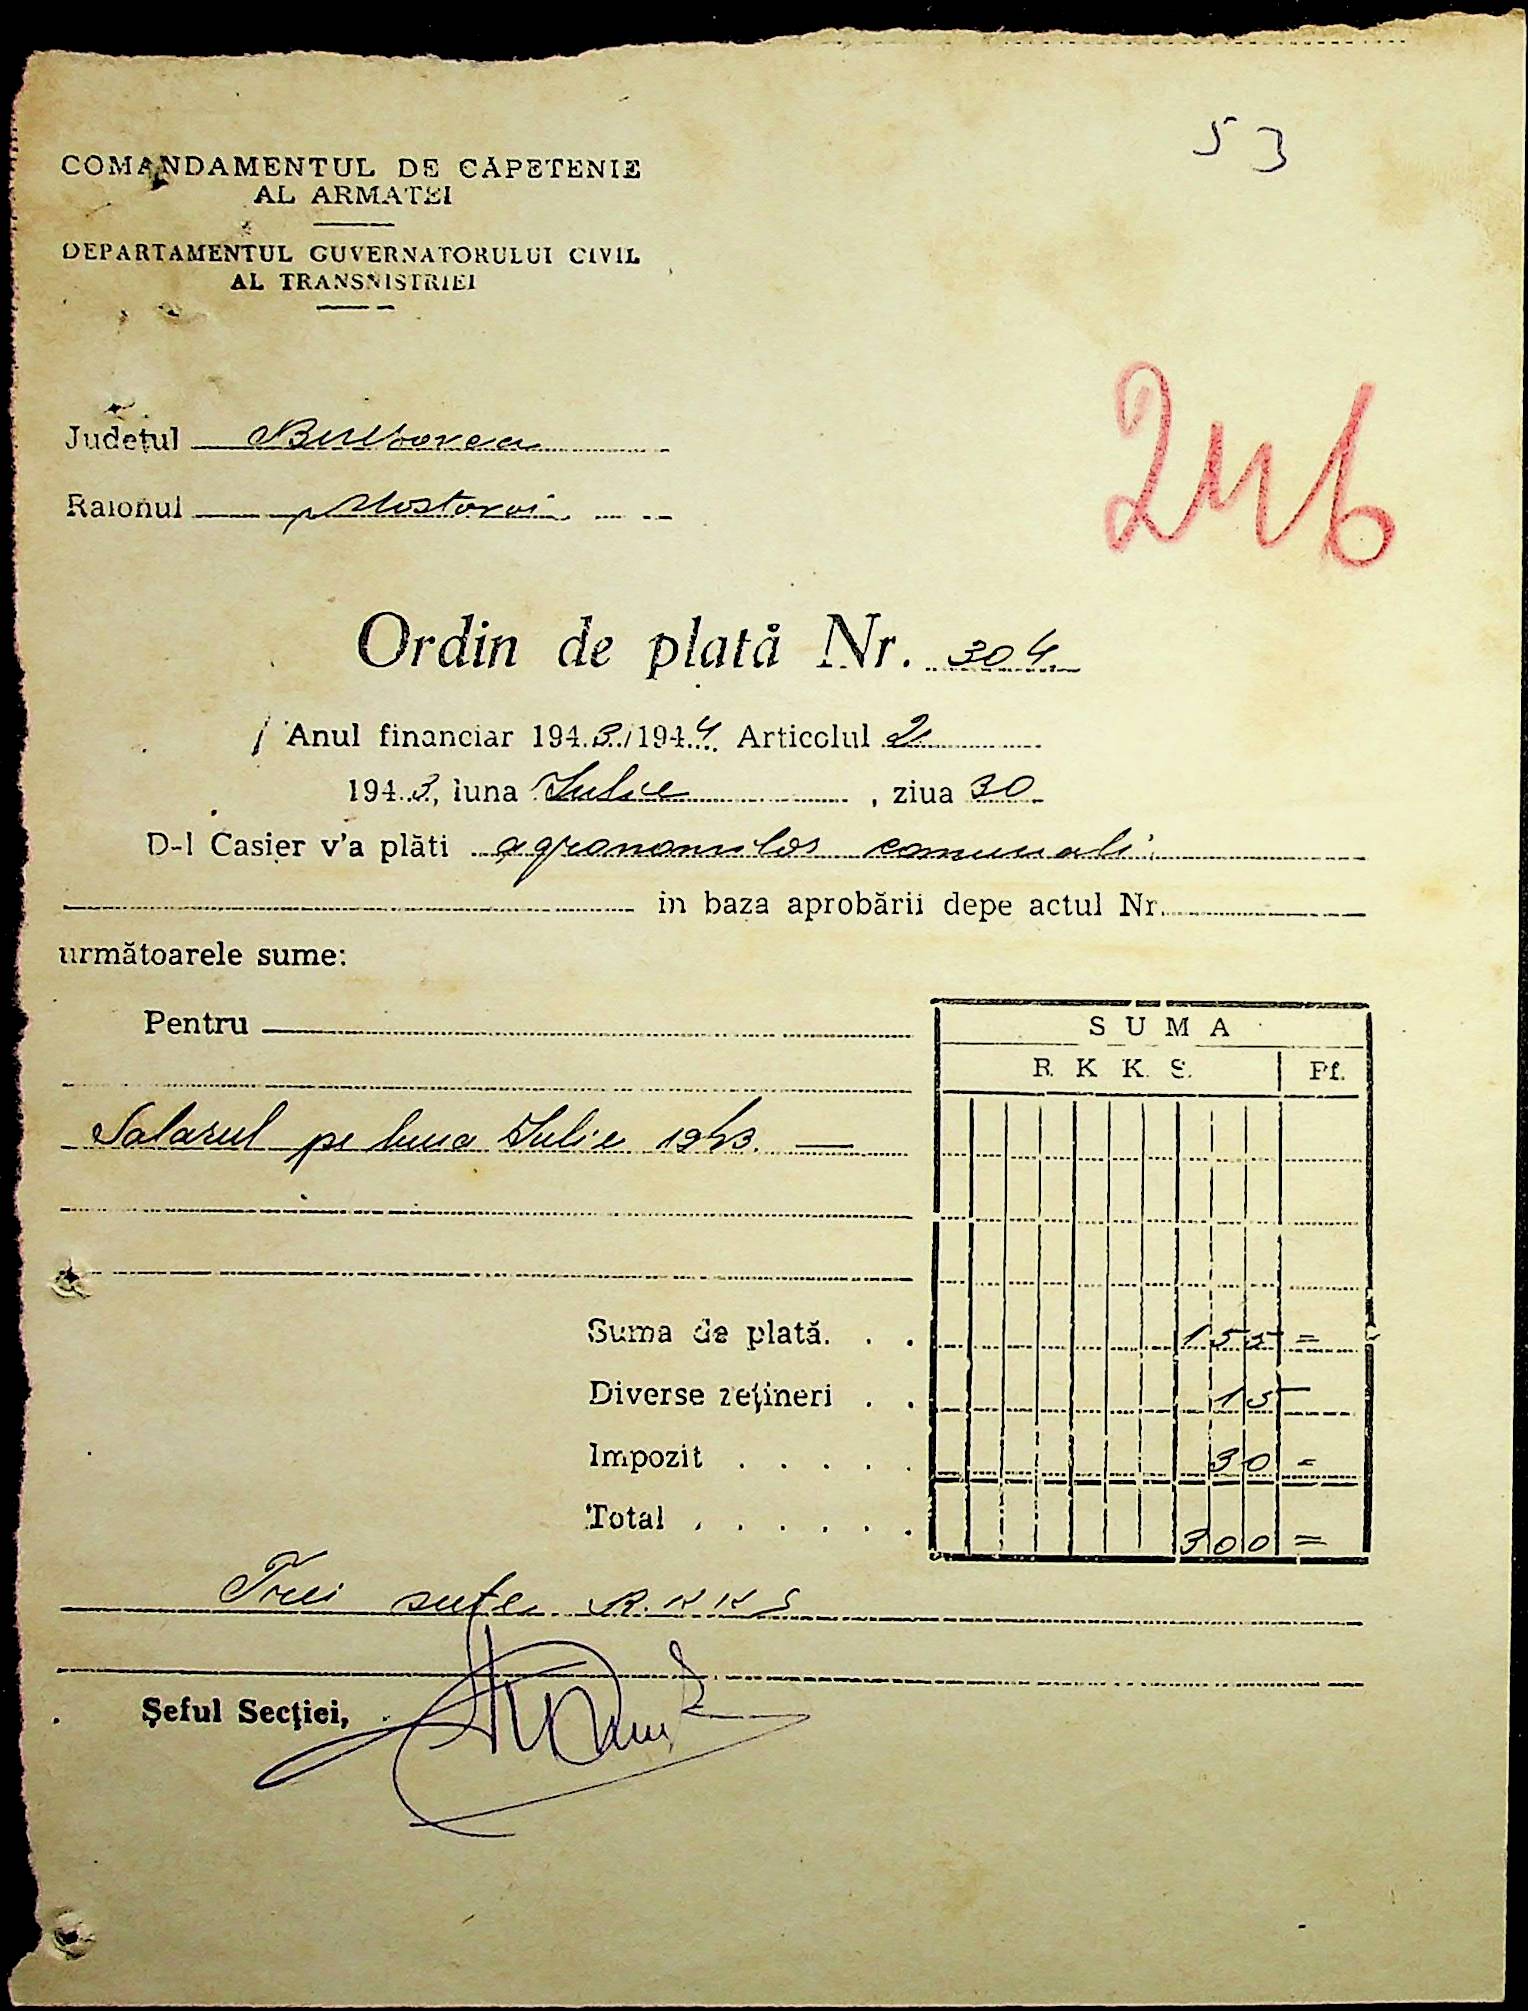 53
COMANDAMENTUL DE CĂPETENIE
AL ARMATEI
DEPARTAMENTUL GUVERNATORULUI CIVIL
AL TRANSNISTRIEI
246
Județul
Raionul Mostovoi
Ordin de plată Nr. 304
Anul financiar 1943/1944 Articolul 2
1943, luna Iulie, ziua 30
D-l Casier v'a plăti agronomilor comunali
in baza aprobării depe actul Nr.
următoarele sume:
Pentru
SUMA
R K K S. Pf.
Salarul pe luna Iulie 1943. —
Suma de plată. . . 155 =
Diverse rețineri . . 15 —
Impozit . . . . . 30 =
Total . . . . . . 300 =
Trei sute R.KKS
Șeful Secției,